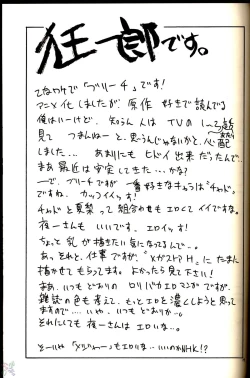 狂一郎です。
てなワケで「ブリーチ」です!
アニメ化しましたが、原作 好きで読んでる
俺はいーけど、知らん人は TVの(一~ 話
見て つまんねーと 思うんじゃないかと、心配
しました… あまりにも ヒドイ出来だったんで…
まあ最近は安定してきた…かな?
で、ブリーチですが 一番好きなキャラは“チャド”
ですね、カッコイイっす!
チャドと夏梨って組合わせも エロくて イイですな。
夜一さんも いいです、エロイッす!
ちょっと 乳が描きたい気になってるんで…。
あっ それと、仕事ですが、“メガストアH”にたまに
描かせてもらってます。よかったら見て下さい!
まあ、いつもどおりの ロリバカエロマンガですが、
雑誌の色も考えて、もっとエロを濃くしようと思って
ますので……いや、いつもどおりか…。
それにしても 夜一さんは エロいな…。
とーいや “メジャー”もエロいな…いいのかNHK!?